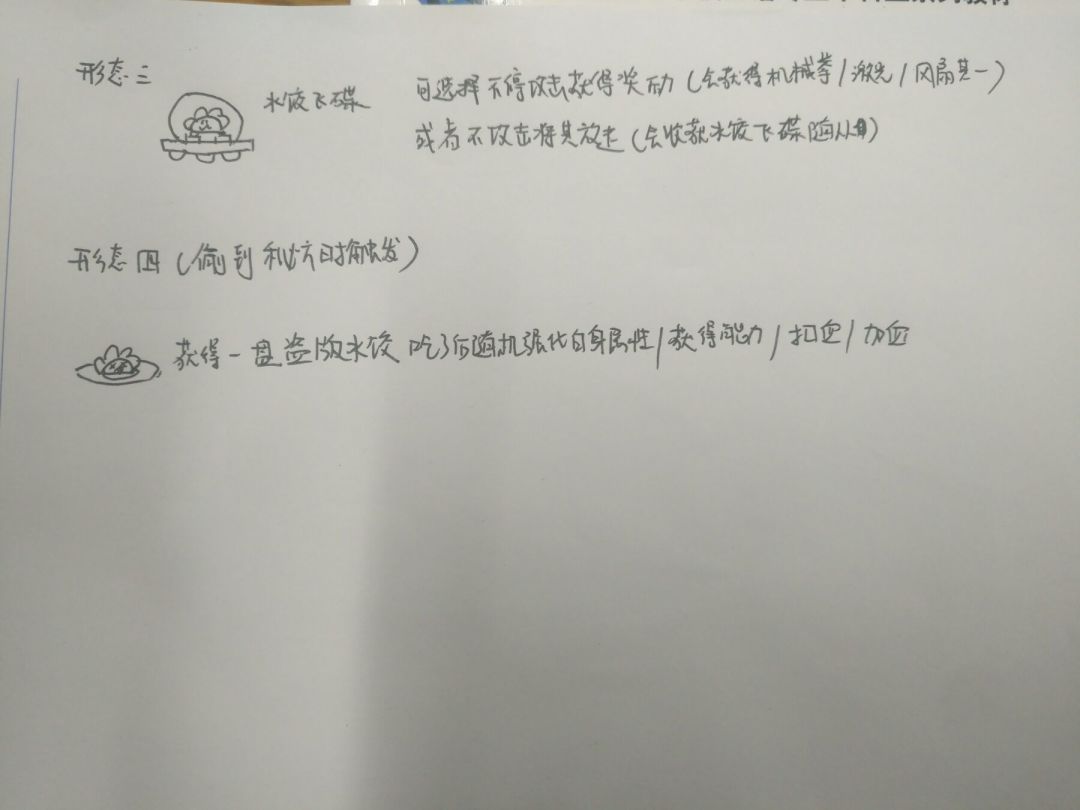 形态三
水饺飞碟
可选择不停攻击获得奖励(会获得机械拳/激光/风扇其一)
或者不攻击将其放走(会收获水饺飞碟随从)
形态四(偷到秘方时触发)
获得一盘盗版水饺 吃了后随机强化自身属性/获得能力/扣血/加血